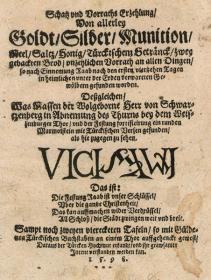 Schatz und Vorraths Erzehlung/
Von allerley
Goldt/ Silber/ Munition/
Meel/ Saltz/ Honig/ Türckischem Getränck/ zweg
gebachen Brod/ unzehlichen Vorrath an allen Dingen/
so nach Einnemung Raab noch den ersten vierzehen Tagen
in heimlichen unter der Erden verwarten Ge-
wölbern gefunden worden.
Deßgleichen/
Was Massen der Wolgeborne Herr von Schwar-
tzenberg in Abbrennung des Thurns bey dem Weis-
senburger Thor/ und der Festung ein runden
Marmorstein mit Türckischen Versen gefunden/
als hie zugegen zu sehen.
Das ist:
Die Festung Raab ist unser Schlüssel/
Uber die gantze Christenheit/
Das kan auffmachen wider Verdrüssel/
Al Schloß/ die Stätt zwingen weit und breit.
Sampt noch zweyen viereckten Tafeln/ so mit Gülde-
nen Türckischen Buchstaben an einem Thor auffgehenckt gewest/
1598.